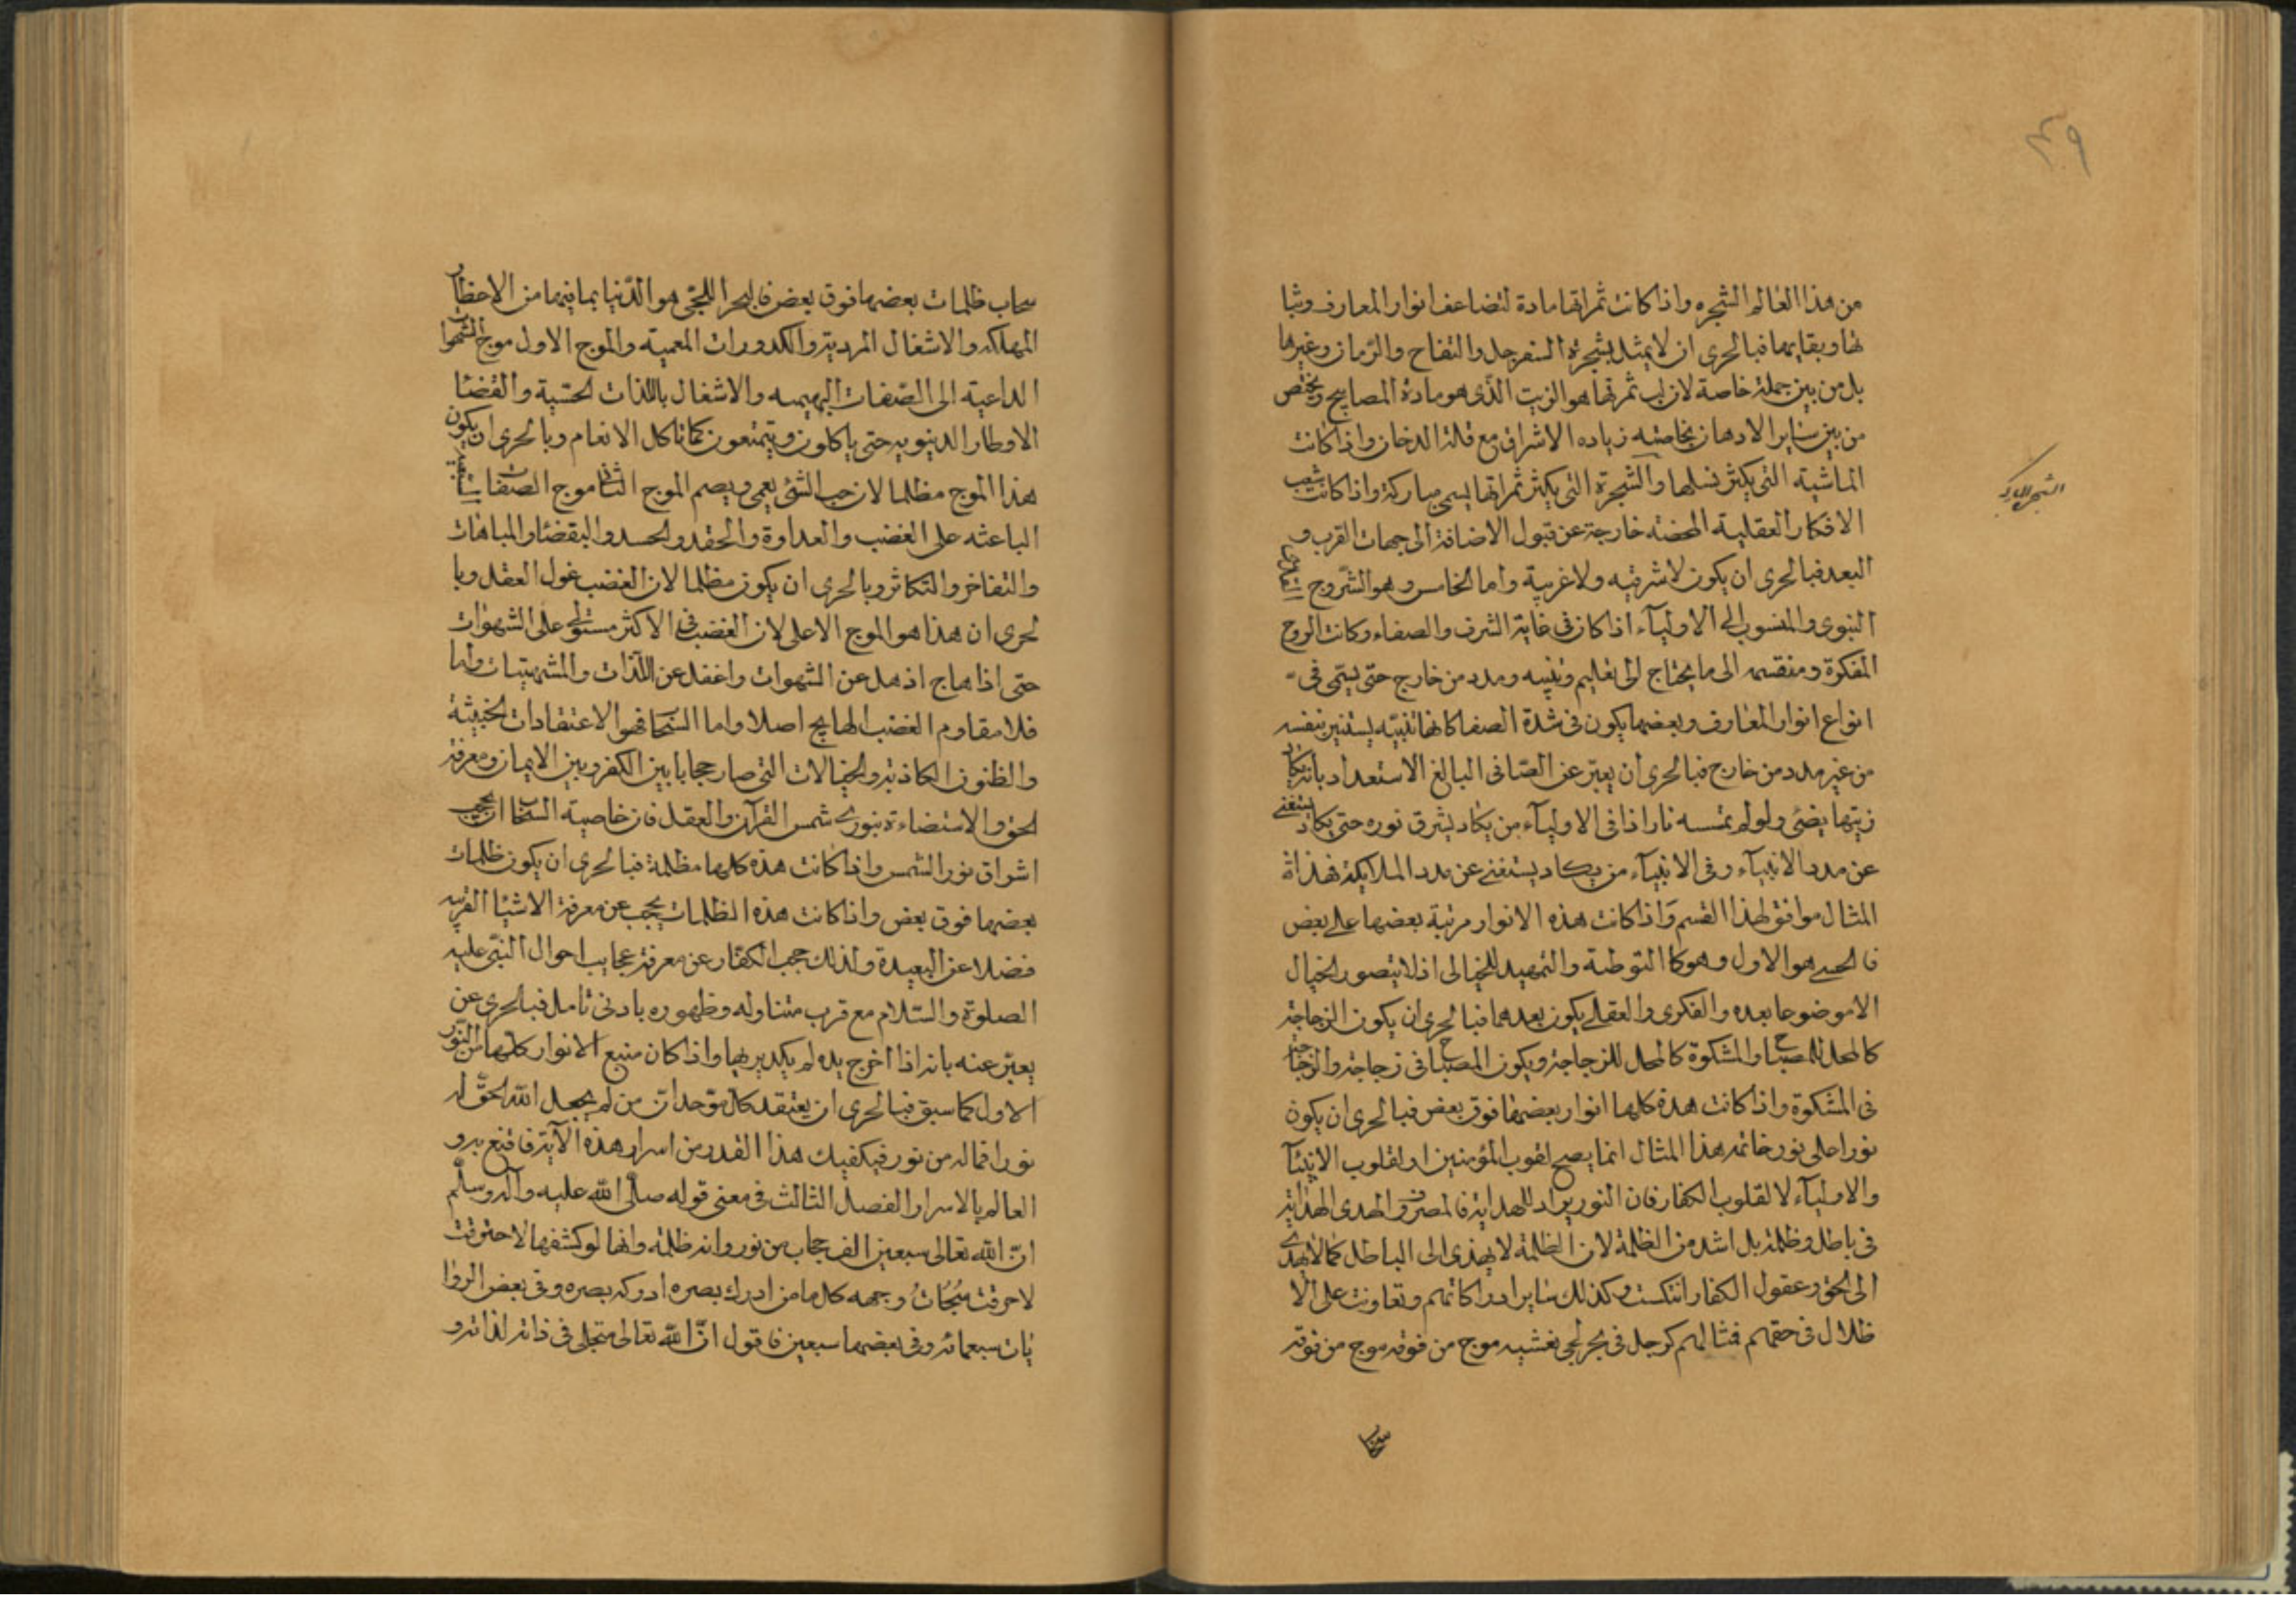 ٣٩
من هذا العالم الشجره واذا كانت ثمراتها مادة لتضاعف انوار المعارف وثبا
تها وبقايها فبالحرى ان لا يمثل بشجرة السفرجل والتفاح والرّمان وغيرها
بل من بين جملة خاصة لان لب ثمرتها هو الزيت الذّى هو مادة المصابيح ويختص
من بين ساير الادهان بخاصته زياده الاشراق مع قلة الدخان واذا كانت
الماشية التى يكثر نسلها والشجرة التى يكثر ثمراتها يسمى مباركة واذا كانت شعب
الافكار العقلية المحضة خارجة عن قبول الاضافة الى جهات القرب و
البعد فبالحرى ان يكون لا شرقيه ولا غربية واما الخامس وهو الرّوح القدسى
النبوى والمنسوب الى الاوليآء اذا كان فى غاية الشرف والصفاء وكانت الروح
المفكرة ومنقسمه الى ما يحتاج الى تعليم وتنبيه ومدد من خارج حتى يستمى فى
انواع انوار المعارف وبعضها يكون فى شدة الصفا كانها تنبيّه يستنير بنفسه
من غير مدد من خارج فبالحرى ان يعبّر عن الصّافى البالغ الاستعداد بانه يكاد
زيتها يضئ ولو لم تمسسه نار اذا فى الاوليآء من يكاد يشرق نوره حتى يكاد يستغنى
عن مدد الانبيآء وفى الانبيآء من يكاد يستغنى عن مدد الملايكة فهذاة
المثال موافق لهذا القسم واذا كانت هذه الانوار مرتبة بعضها على بعض
فالحسى هو الاول وهو كالتوطئة والتمهيد للخيالى اذ لا يتصور الخيال
الا موضوعا بعده والفكرى والعقلى يكون بعدهما فبالحرى ان يكون الزجاجة
كالمحل للمصباح والمشكوة كالمحل للزجاجة ويكون المصباح فى زجاجة والزجاجة
فى المشكوة واذا كانت هذه كلها انوار بعضها فوق بعض فبالحرى ان يكون
نورا على نور خاتمه هذا المثال انما يصح لقوب المؤمنين او لقلوب الانبيآ
والاوليآء لا لقلوب الكفار فان النور يراد للهداية فالمصروف الهدى الهداية
فى باطل وظلمة بل اشد من الظلمة لان الظلمة لا يهدى الى الباطل كما لا يهدى
الى الحق وعقول الكفار انتكست وكذلك ساير ادراكاتهم وتعاونت على الا
ظلال فى حقهم فمثالهم كرجل فى بحر لجى يغشيه موج من فوقه موج من فوقه
سحاب
سحاب ظلمات بعضها فوق بعض فالبحر اللجىّ هو الدّنيا بما فيها من الاخطار
المهلكه والاشغال المردية والكدورات المعمية والموج الاول موج الشهوات
الداعية الى الصّفات البهيمه والاشغال باللذات الحسّية والقضا
الاوطار الدينويه حتى ياكلون ويتمتعون كما تاكل الانعام وبالحرى ان يكون
هذا الموج مظلما لان حب الشئ يعمى ويصم الموج الثانى موج الصفات السبعيه
الباعثه على الغضب والعداوة والحقد والحسد والبغضا والمباهات
والتفاخر والتكاثر وبالحرى ان يكون مظلما لان الغضب غول العقل وبا
لحرى ان هذا هو الموج الاعلى لان الغضب فى الاكثر مستولى على الشهوات
حتى اذا هاج اذهل عن الشهوات واغفل عن اللّذات والمشتهيات واما
فلا مقاوم الغضب الهايج اصلا واما السّحاب فهو الاعتقادات الخبيثة
والظنون الكاذبة والخيالات التى صار حجابا بين الكفر وبين الايمان ومعرفة
الحق والاستضاءة بنور شمس القرآن والعقل فان خاصية السّحاب ان يحجب
اشراق نور الشمس واذا كانت هذه كلها مظلمة فبالحرى ان يكون ظلمات
بعضها فوق بعض واذا كانت هذه الظلمات يحجب عن معرفة الاشيا القريبه
فضلا عن البعيدة ولذلك حجب الكفّار عن معرفة عجايب احوال النبّى عليه
الصلوة والسّلام مع قرب متناوله وظهوره بادنى تامل فبالحرى عن
يعبّر عنه بانه اذا اخرج يده لم يكد يريها واذا كان منبع الانوار كلها من النّور
الاول كما سبق فبالحرى ان يعتقد كل موّحد انّ من لم يجعل اللّه الحقّ له
نورا فما له من نور فيكفيك هذا القدر من اسرار هذه الآية فاقنع به و
العالم بالاسرار الفصل الثالث فى معنى قوله صلّى اللّه عليه وآله وسلّم
انّ اللّه تعالى سبعين الف حجاب من نور وانه ظلمة وانها لو كشفها لاحترقت
لاحرقت سُبُحَاتُ وجهه كل ما من ادرك بصره ادركه بصره وفى بعض الروا
يات سبعمائه وفى بعضها سبعين فاقول انّ اللّه تعالى متجلى فى ذاته لذاته و